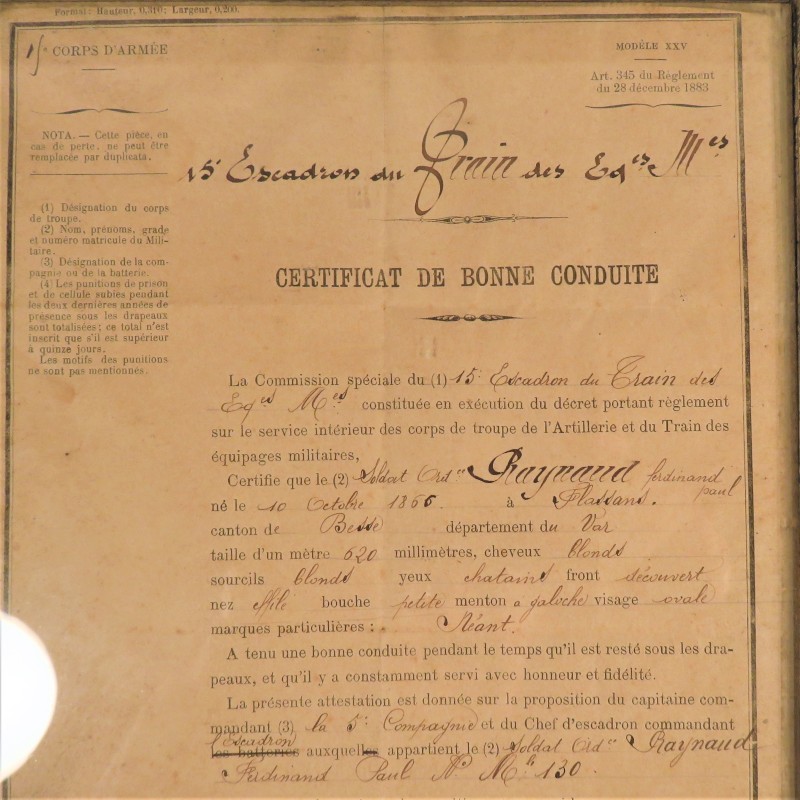 Format: Hauteur, 0,310; Largeur, 0,200.
15e CORPS D'ARMÉE
MODÈLE XXV
Art. 345 du Règlement
du 28 décembre 1883
NOTA. — Cette pièce, en
cas de perte, ne peut être
remplacée par duplicata.
15e Escadron du Train des Eqes Mes
(1) Désignation du corps
de troupe.
(2) Nom, prénoms, grade
et numéro matricule du Mili-
taire.
(3) Désignation de la com-
pagnie ou de la batterie.
(4) Les punitions de prison
et de cellule subies pendant
les deux dernières années de
présence sous les drapeaux
sont totalisées; ce total n'est
inscrit que s'il est supérieur
à quinze jours.
Les motifs des punitions
ne sont pas mentionnés.
CERTIFICAT DE BONNE CONDUITE
La Commission spéciale du (1) 15e Escadron du Train des
Eqes Mes constituée en exécution du décret portant règlement
sur le service intérieur des corps de troupe de l'Artillerie et du Train des
équipages militaires,
Certifie que le (2) Soldat Ordre Raynaud ferdinand paul
né le 10 Octobre 1866. à Flassans.
canton de Besse département du Var
taille d'un mètre 620 millimètres, cheveux blonds
sourcils blonds yeux chatains front découvert
nez effilé bouche petite menton a galoche visage ovale
marques particulières : Néant.
A tenu une bonne conduite pendant le temps qu'il est resté sous les dra-
peaux, et qu'il y a constamment servi avec honneur et fidélité.
La présente attestation est donnée sur la proposition du capitaine com-
mandant (3) la 5e Compagnie et du Chef d'escadron commandant
l'Escadron
les batteries auxquelles appartient le (2) Soldat Ordre Raynaud
Ferdinand Paul No Mle 130.